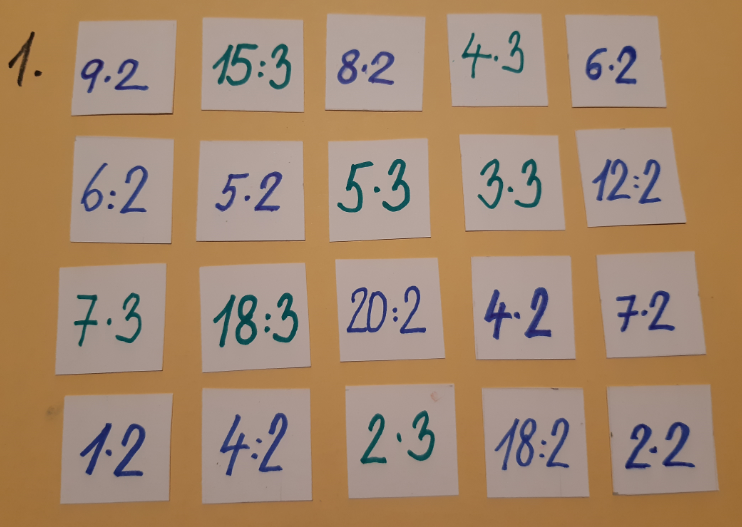 1. 9·2 15:3 8·2 4·3 6·2
6:2 5·2 5·3 3·3 12:2
7·3 18:3 20:2 4·2 7·2
1·2 4:2 2·3 18:2 2·2